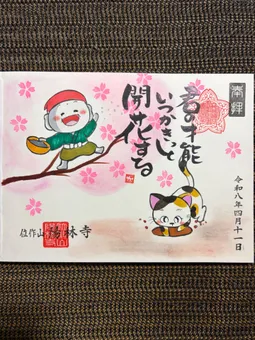 奉拝
君の才能
いつかきっと
開花する
令和八年四月十一日
陽林寺